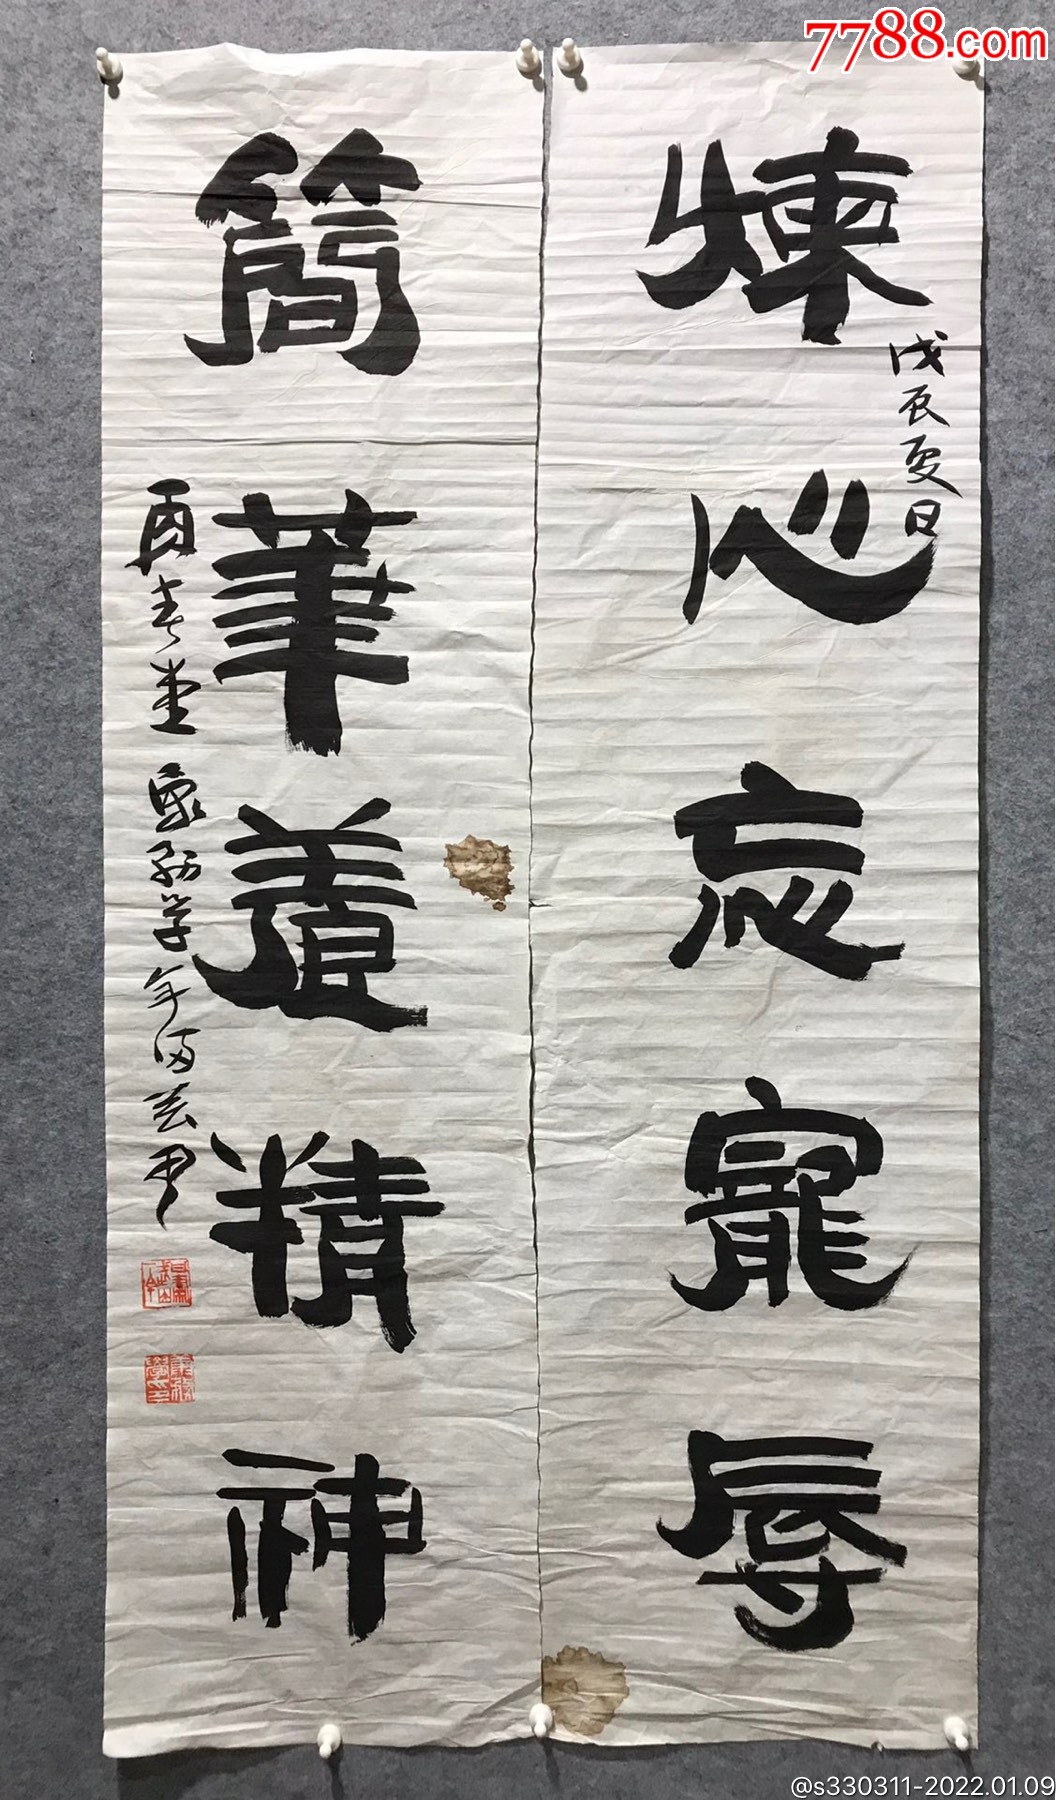 7788.com
煉心忘寵辱
戊辰夏日
簡華養精神
年
@s330311-2022.01.09